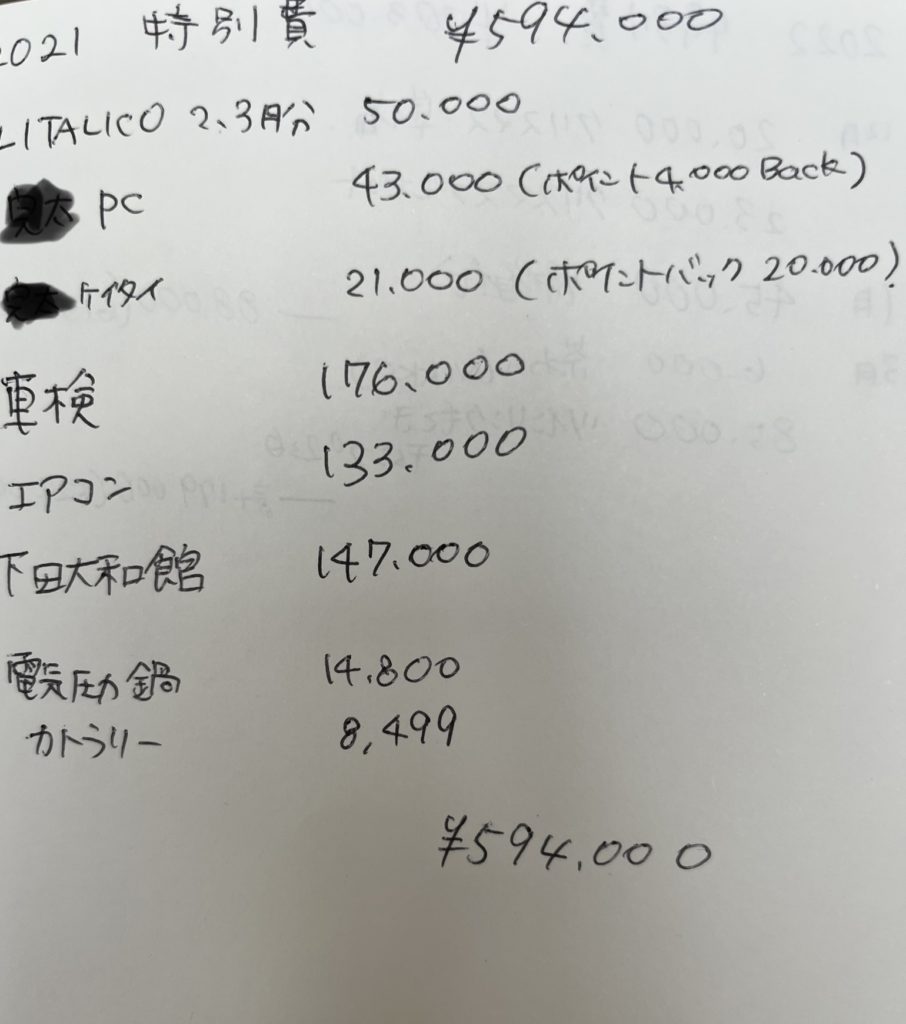 2021 特別費 ¥594.000
LITALICO 2、3月分 50.000
PC 43.000 (ポイント4.000 Back)
ケイタイ 21.000 (ポイントバック 20.000)
車検 176.000
エアコン 133.000
下田大和館 147.000
電気圧力鍋 14.800
カトラリー 8,499
¥594.000